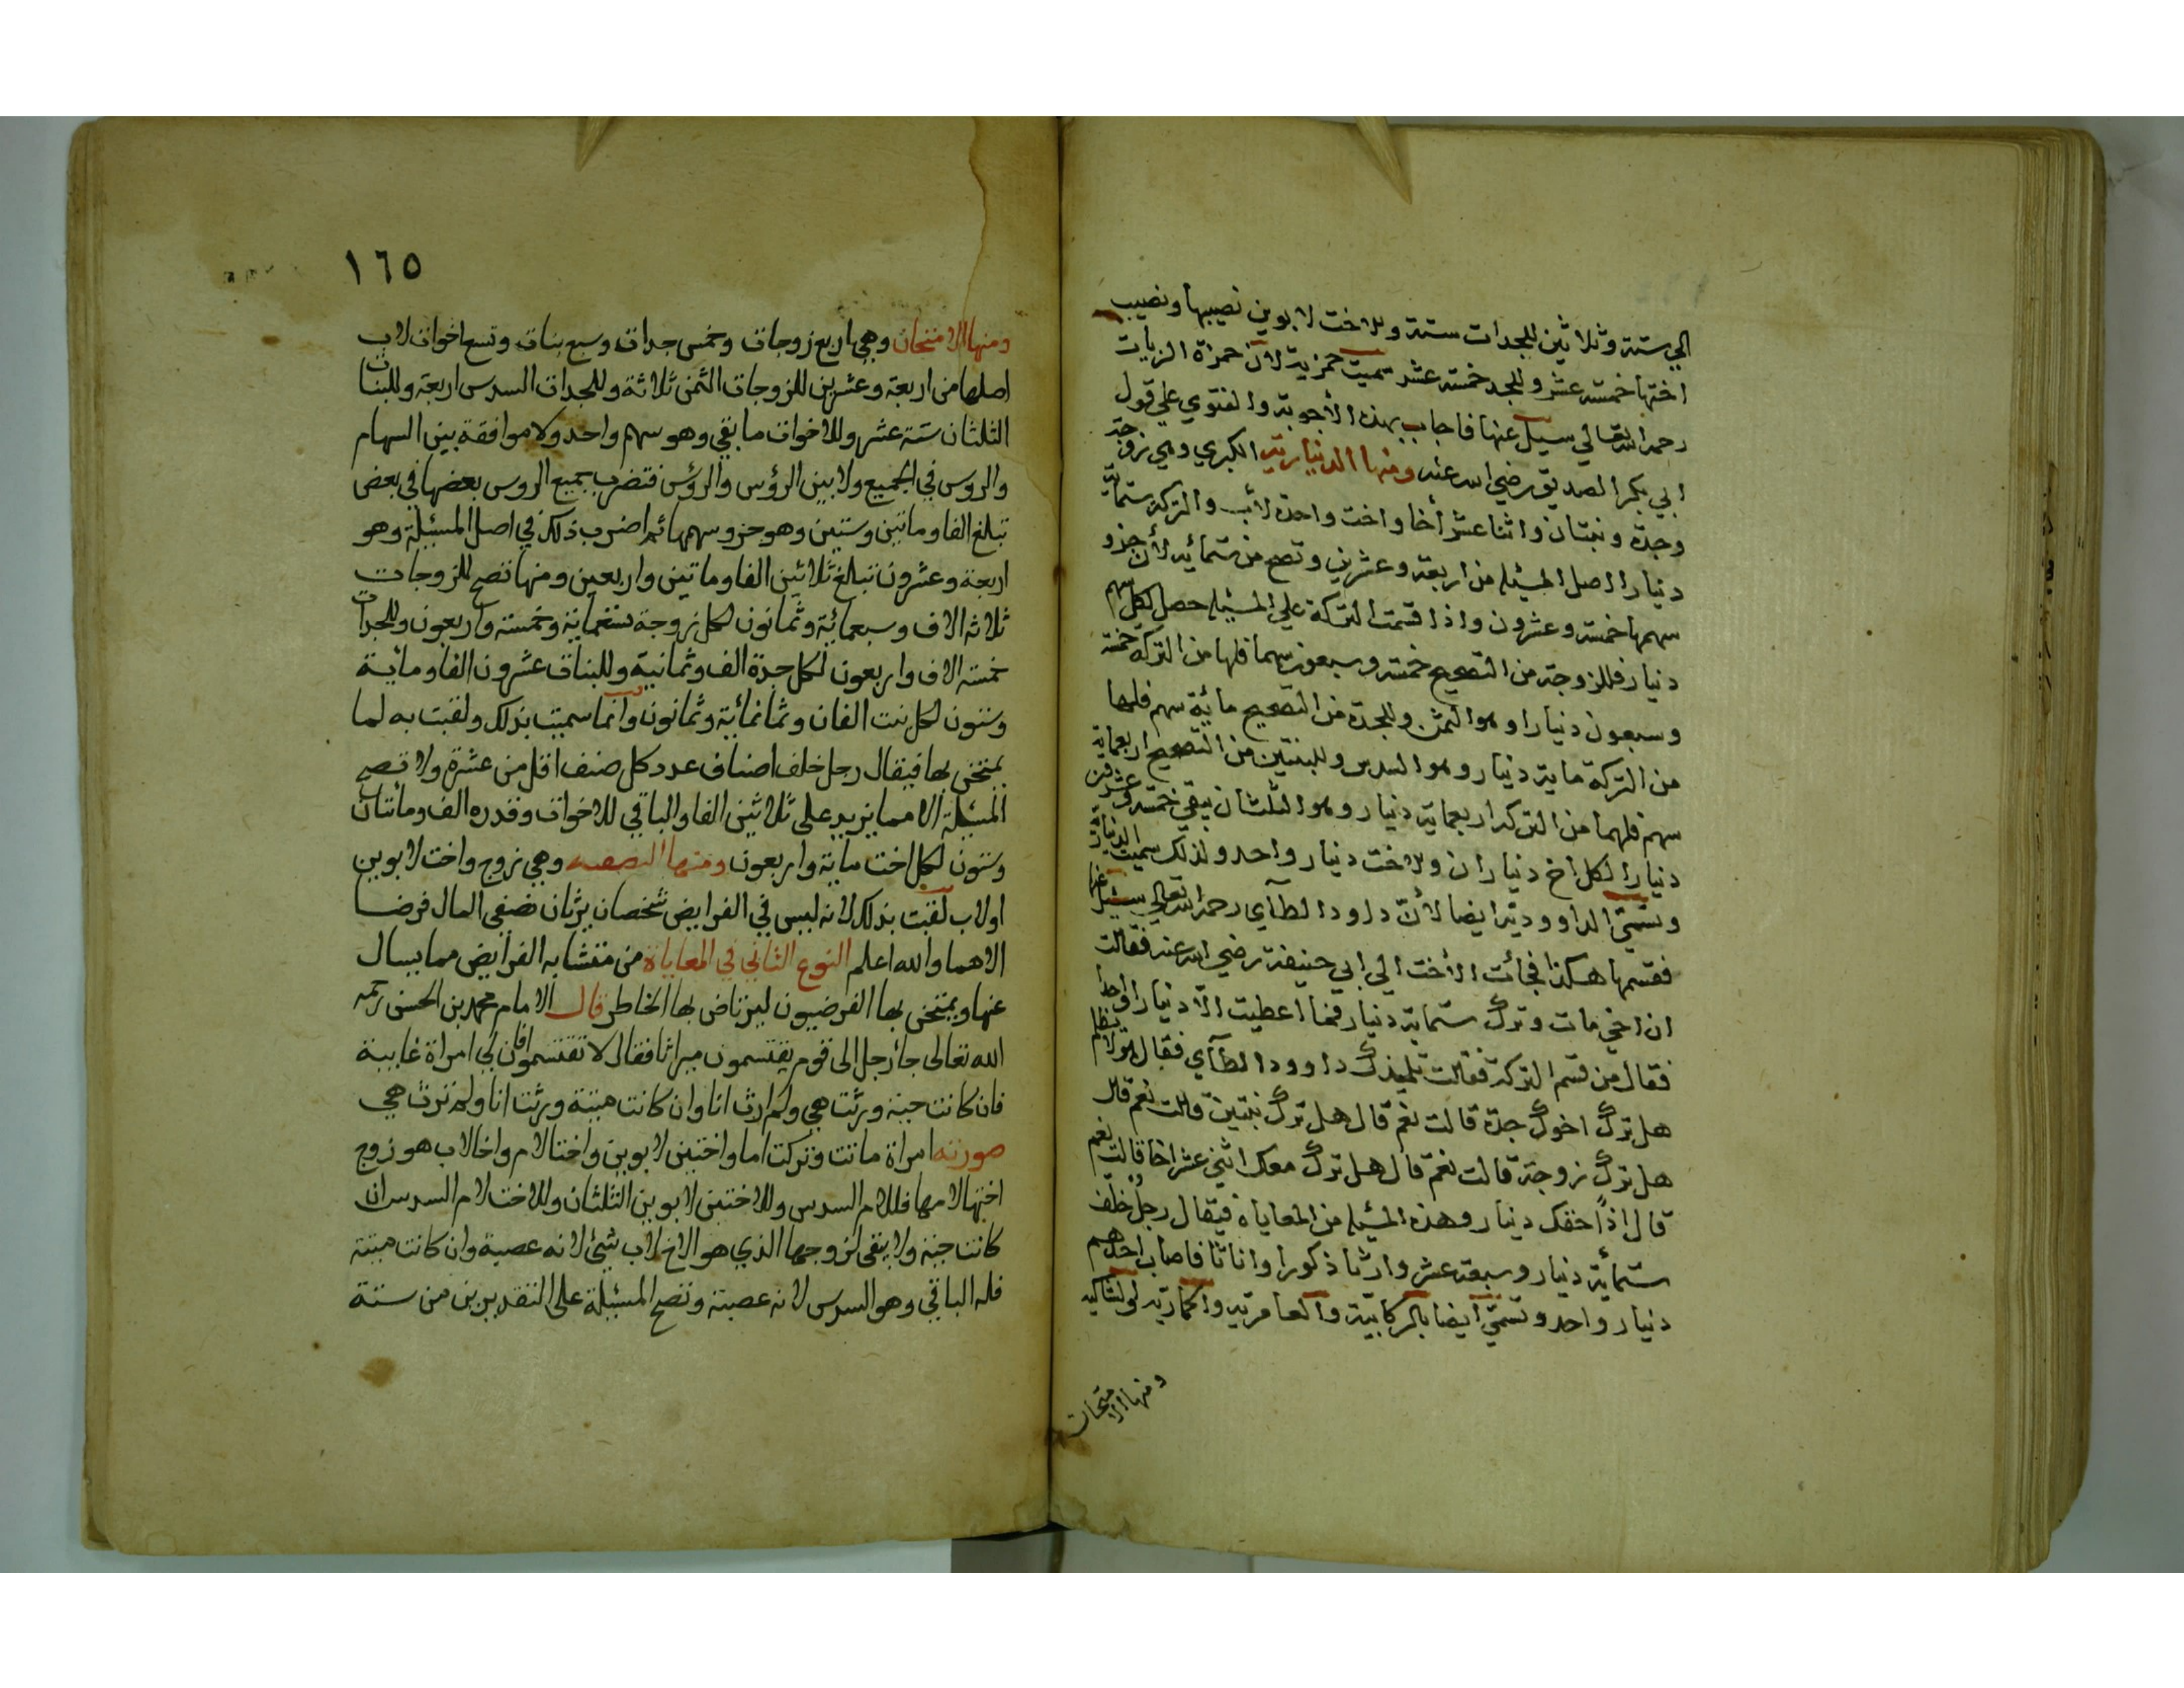 الي ستة وثلاثين للجدات ستة وللاخت لابوين نصيبها ونصيب
اختها خمسة عشر وللجد خمسة عشر سميت حمزية لان حمزة الزيات
رحمه الله تعالي سيل عنها فاجاب بهذه الأجوبة والفتوي علي قول
ابي بكر الصديق رضي الله عنه ومنها الدينارية الكبري وهي زوجة
وجدة وبنتان واثنا عشر أخا واخت واحدة لأب والتركة ستماية
دنيارا اصل المسئلة من اربعة وعشرين وتصح من ستمائة لأن جزو
سهمها خمسة وعشرون واذا قسمت التركة علي المسئلة حصل لكل سهم
دنيار فللزوجة من التصحيح خمسة وسبعون سهما فلها من التركة خمسة
وسبعون دنيارا وهو الثمن وللجدة من التصحيح مائة سهم فلها
من التركة ماية دنيار وهو السدس وللبنتين من التصحيح اربعماية
سهم فلهما من التركة اربعماية دنيار وهو الثلثان يبقي خمسة وعشرون
دنيارا لكل اخ دنياران وللاخت دنيار واحد ولذلك سميت الدنيارية
وتسمّي الداوودية ايضا لأنّ داود الطآي رحمه الله تعالي سئيل عنها
فقسمها هكذا فجائت الأخت الي ابي حنيفة رضي الله عنه فقالت
ان اخي مات وترك ستماية دنيار فما اعطيت الّا دنيارا واحدا
فقال من قسم التركة فقالت تلميذك داوود الطآي فقال هو لا يظلم
هل ترك اخوك جدة قالت نعم قال هل ترك بنتين قالت نعم قال
هل ترك زوجة قالت نعم قال هل ترك معك اثني عشر اخا قالت نعم
قال اذًا حقك دنيار وهذه المسئلة من المعاياة فيقال رجل خلّف
ستمأية دنيار وسبعة عشر وارثا ذكورا واناثا فاصاب احدهم
دنيار واحد وتسمّي ايضا بالركابيّة والعامرية والحمارية والشاكية
ومنها الامتحان
١٦٥
ومنها الامتحان وهي اربع زوجات وخمس جدات وسبع بنات وتسع اخوات لاب
اصلها من اربعة وعشرين للزوجات الثمن ثلاثة وللجدات السدس اربعة وللبنات
الثلثان ستة عشر وللاخوات ما بقي وهو سهم واحد ولا موافقة بين السهام
والروس في الجميع ولا بين الرؤس والرؤس فتضرب جميع الروس بعضها في بعض
تبلغ الفا وماتين وستين وهو جزو سهمها ثم اضرب ذلك في اصل المسئلة وهو
اربعة وعشرون تبلغ ثلاثين الفا وماتين واربعين ومنها تصح للزوجات
ثلاثة الاف وسبعمائة وثمانون لكل زوجة تسعماية وخمسة واربعون وللجدات
خمسة الاف واربعون لكل جدة الف وثمانية وللبنات عشرون الفا وماية
وستون لكل بنت الفان وثمانمأية وثمانون وانما سميت بذلك ولقبت به لما
يمتحن بها فيقال رجل خلف اصناف عدد كل صنف اقل من عشرة ولا تصح
المسئلة الا مما يزيد على ثلاثين الفا والباقي للاخوات وقدره الف ومائتان
وستون لكل اخت ماية واربعون ومنها النصفيه وهي زوج واخت لابوين
اولاب لقبت بذلك لانه ليس في الفرايض شخصان يرثان نصفي المال فرضا
الاهما والله اعلم النوع الثاني في المعاياة من متشابه الفرايض مما يسال
عنها ويمتحن بها الفرضيون ليرتاض بها الخاطر قال الامام محمد بن الحسن رحمه
الله تعالى جأ رجل الى قوم يقتسمون ميراثا فقال لا تقتسموا فان لي امراة غايبة
فان كانت حية ورثت هي ولم ارث انا وان كانت ميتة ورثت انا ولم ترث هي
صورته امراة ماتت وتركت اما واختين لابوين واختا لام واخا لاب هو زوج
اختها لامها فللام السدس وللاختين لابوين الثلثان وللاخت لام السدس ان
كانت حية ولا يبقى لزوجها الذي هو الاخ لاب شئ لانه عصبة وان كانت ميتة
فله الباقي وهو السدس لانه عصبة وتصح المسئلة على التقديرين من ستة